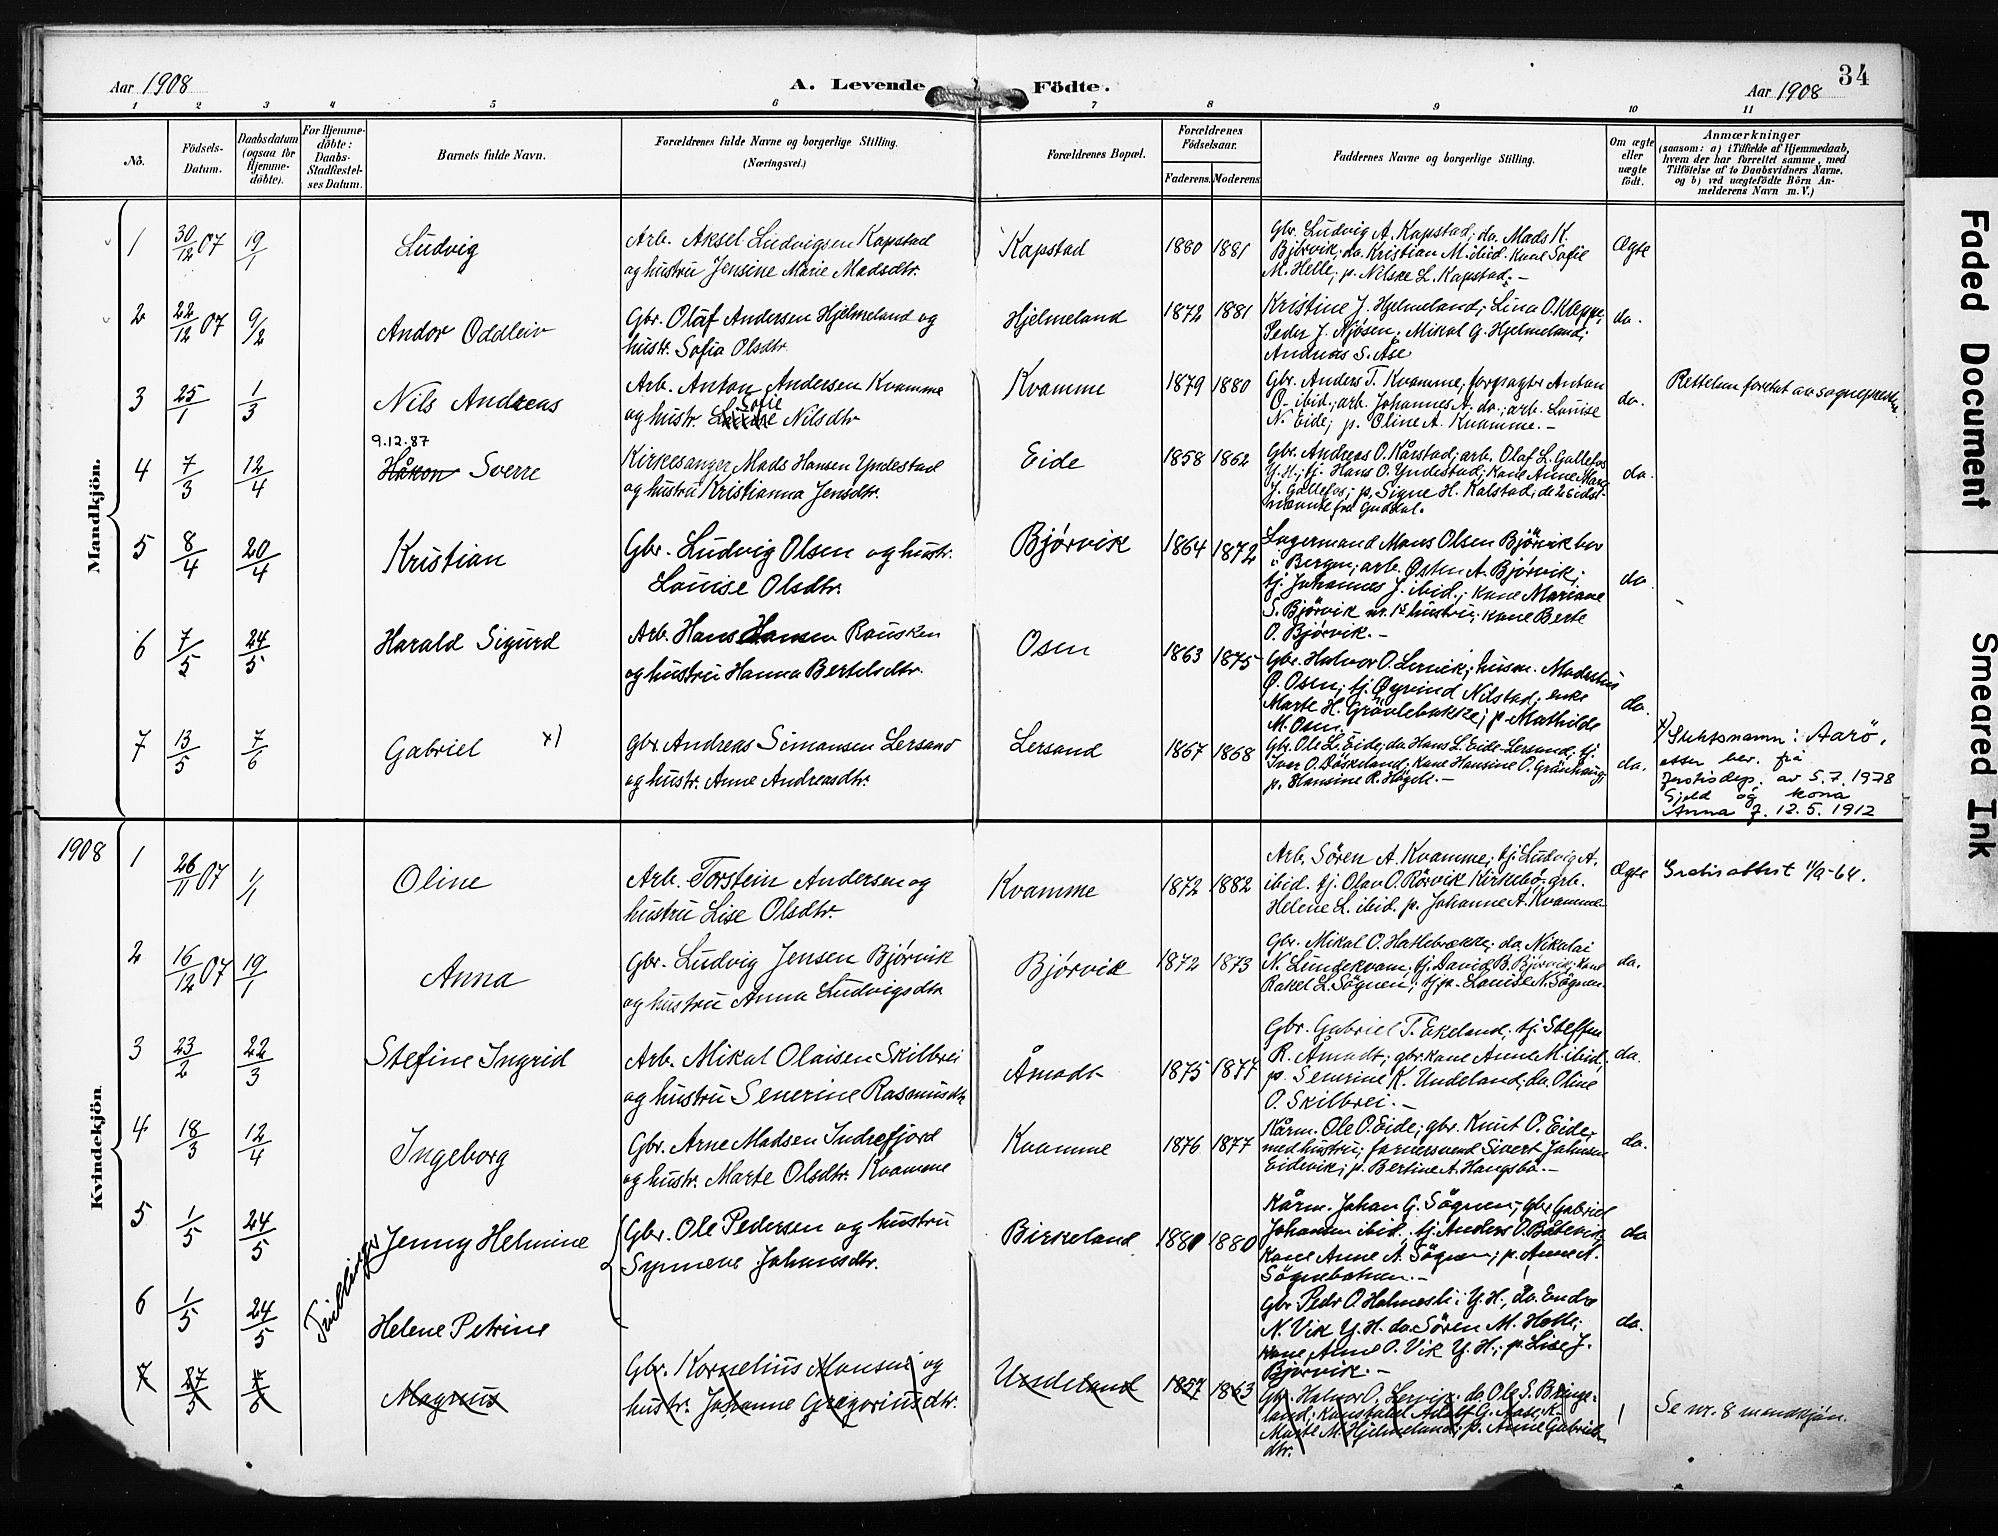 Aar 1908
A. Levende Födte.
Aar 1908
34
1 2 3 4 5 6 7 8 9 10 11
No.
Födsels-Datum.
Daabsdatum (ogsaa for Hjemme-döbte).
For Hjemme-döbte: Daabs-Stadfestel-ses Datum.
Barnets fulde Navn.
Forældrenes fulde Navne og borgerlige Stilling.
(Næringsvei.)
Forældrenes Bopæl.
Forældrenes Födselsaar.
Faderens. Moderens.
Faddernes Navne og borgerlige Stilling.
Om ægte eller uægte födt.
Anmærkninger
(saasom: a) i Tilfælde af Hjemmedaab,
hvem der har forrettet samme, med
Tilföielse af to Daabsvidners Navne,
og b) ved uægtefödte Börn An-
melderens Navn m. V.)
Mandkjön.
1 30/12 07 19/1 Ludvig
Arb. Aksel Ludvigsen Kapstad
og hustru Jensine Marie Madsdtr.
Kapstad 1880 1881
Gbr. Ludvig A. Kapstad; do. Mads K.
Bjørvik; do. Kristian M. ibid. Kone Sofie
M. Helle; p. Nilske L. Kapstad. –
Ægte
2 22/12 07 9/2 Andor Oddleiv
Gbr. Olaf Andersen Hjelmeland og
hustr. Sofia Olsdtr.
Hjelmeland 1872 1881
Kristine J. Hjelmeland; Lina O. Kleppe;
Peder J. Njøsen; Mikal G. Hjelmeland;
Andreas S. Åse
do.
3 25/1 1/3 Nils Andreas
Arb. Anton Andersen Kvamme
og hustr. Sofie Nilsdtr
Kvamme 1879 1880
Gbr. Anders T. Kvamme; forpagter Anton
O. ibid.; arb. Johannes A. do.; arb. Louise
N. Eide; p. Oline A. Kvamme. –
do.
Rettelsen foretat av sognepresten
4 7/3 12/4
9.12.87
Håkon Sverre
Kirkesanger Mads Hansen Yndestad
og hustru Kristianna Jensdtr.
Eide 1858 1862
Gbr. Andreas O. Kårstad; arb. Olaf L. Gallefos
Y. H.; tj. Hans O. Yndestad; Kone Anne Marie
J. Gallefos; p. Signe H. Kalstad; de 2 sidst-
nævnte fra Guddal.
do.
5 8/4 20/4 Kristian
Gbr. Ludvig Olsen og hustr.
Louise Olsdtr.
Bjørvik 1864 1872
Lagermand Mons Olsen Bjørvik bor
i Bergen; arb. Østen A. Bjørvik;
tj. Johannes J. ibid.; kone Mariane
S. Bjørvik nr. 1s hustru; kone Berte
O. Bjørvik. –
do
6 7/5 24/5 Harald Sigurd
Arb. Hans Hansen Rousken
og hustru Hanna Bertelsdtr.
Osen 1863 1875
Gbr. Halvor O. Lervik; husm. Modestus
Ø. Osen; tj. Øyvind Nilstad; enke
Marte H. Grövlebakke; p. Mathilde
M. Osen.
do.
7 13/5 7/6 Gabriel x)
Gbr. Andreas Simonsen Lersand
og hustr. Anne Andreasdtr.
Lersand 1867 1868
Gbr. Ole L. Eide; do Hans L. Eide Lersand; tj.
Ivar O. Döskeland; kone Hansine O. Grönhaug;
p. Hansine R. Högde. –
do.
x) Slektsnamn: Aarö,
etter bev. frå
Justisdep. av 5.7.1978
Gjeld og kona
Anna f. 12.5.1912
Kvindekjön
1908
1 26/11 07 1/1 Oline
Arb. Torstein Andersen og
hustru Lise Olsdtr.
Kvamme 1872 1882
Arb. Sören A. Kvamme; tj. Ludvig A.
ibid. tj. Olav O. Rörvik Kirkebö; arb.
Helene L. ibid. p. Johanne A. Kvamme
Ægte
Gratisattest 11/9-64.
2 16/12 07 19/1 Anna
Gbr. Ludvig Jensen Bjørvik
og hustru Anna Ludvigsdtr
Bjørvik 1872 1873
Gbr. Mikal O. Hatlebrekke; do. Nikolai
N. Lundekvam; tj. David B. Bjørvik; kone
Rakel L. Sögnen; tj. p. Louise N. Sögnen
do.
3 23/2 22/3 Stefine Ingrid
Arb. Mikal Olaisen Skilbrei
og hustru Severine Rasmusdtr
Åmodt 1875 1877
Gbr. Gabriel T. Ekeland; tj. Steffen
R. Åmodt; gbr. kone Anne M. ibid;
p. Severine K. Undeland; do. Oline
O. Skilbrei. –
do.
4 18/3 12/4 Ingeborg
Gbr. Arne Madsen Indrefjord
og hustr. Marte Olsdtr. Kvamme
Kvamme 1876 1877
Kårm. Ole P. Eide; gbr. Knut O. Eide
med hustru; farversvend Sivert Johnsen
Eidevik; p. Bertine A. Haugsbø. –
do.
Tvillinger
5 1/5 24/5 Jenny Helmine
Gbr. Ole Pedersen og hustru
Synneve Johansdtr.
Birkeland 1880 1880
Kårm. Johan G. Sögnen; gbr. Gabriel
Johansen ibid.; tj. Anders O. Båtevik;
Kone Anne A. Sögnen; p. Anne A.
Sögnebotnen. –
do
6 1/5 24/5 Helene Petrine
Gbr. Pedr O. Holmesli: Y. H.; do. Endre
N. Vik Y. H. do. Sören M. Helle;
kone Anne O. Vik Y. H.; p. Lise J.
Bjørvik. –
do.
7 27/5 Magnus
Gbr. Kornelius Monsen og
hustr. Johanne Gregoriusdtr.
Undeland 1857 1863
Gbr. Halvor O. Lervik; do. Ole S. Bringe-
land; Kunstaled Adolf G. Aase; k.
Marte M. Hjelmeland; p. Anne Gabriels-
dtr.
Se nr. 8 mandkjön.
Faded Document
Smeared Ink